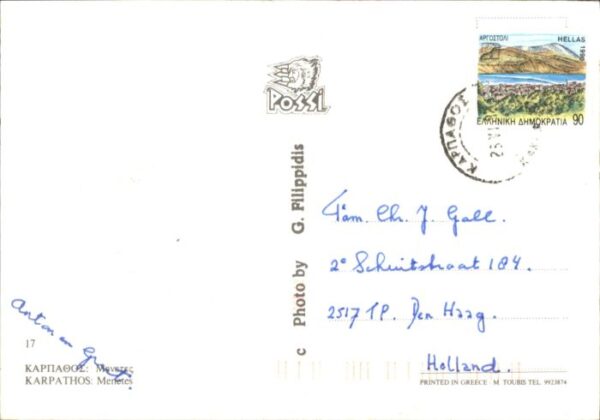 ΑΡΓΟΣΤΟΛΙ HELLAS
ΕΛΛΗΝΙΚΗ ΔΗΜΟΚΡΑΤΙΑ 90
ΚΑΡΠΑΘΟΣ
POSSI
c Photo by G. Filippidis
Fam. Chr. J. Gall.
2e Schuitstraat 184.
2517 TP. Den Haag.
Holland.
Anton en
17
ΚΑΡΠΑΘΟΣ: Μενετές
KARPATHOS: Menetes
PRINTED IN GREECE M. TOUBIS TEL. 9923874